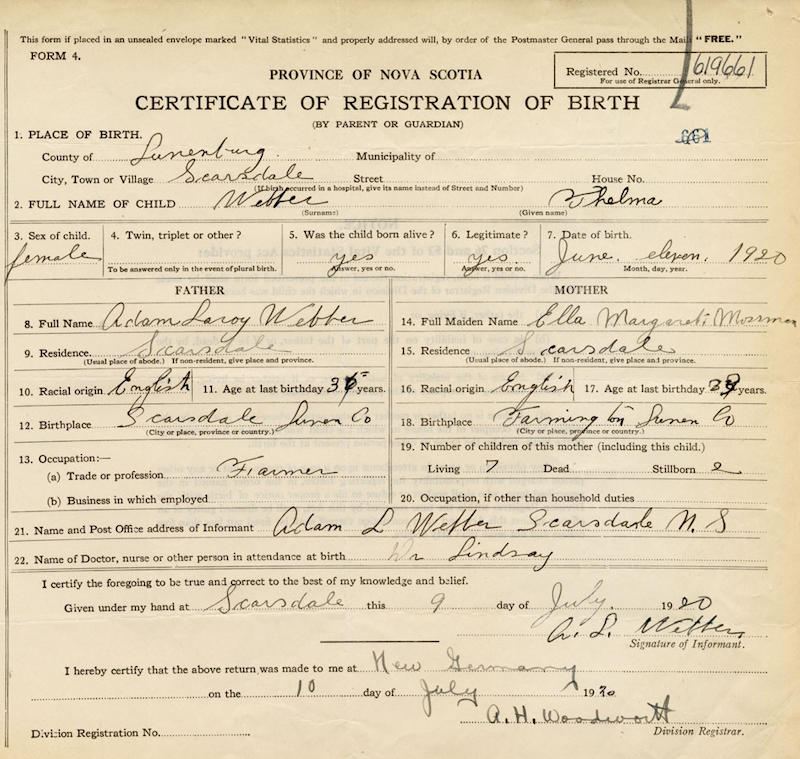 This form if placed in an unsealed envelope marked "Vital Statistics" and properly addressed will, by order of the Postmaster General pass through the Mail "FREE."
FORM 4.
Registered No. 619661
For use of Registrar General only.
PROVINCE OF NOVA SCOTIA
CERTIFICATE OF REGISTRATION OF BIRTH
(BY PARENT OR GUARDIAN)
661
1. PLACE OF BIRTH.
County of Lunenburg Municipality of
City, Town or Village Scarsdale Street House No.
(If birth occurred in a hospital, give its name instead of Street and Number)
2. FULL NAME OF CHILD Webber Thelma
(Surname) (Given name)
3. Sex of child. 4. Twin, triplet or other ? 5. Was the child born alive ? 6. Legitimate ? 7. Date of birth.
female yes yes June eleven 1920
To be answered only in the event of plural birth. Answer, yes or no. Answer, yes or no. Month, day, year.
FATHER MOTHER
8. Full Name Adam Laroy Webber 14. Full Maiden Name Ella Margaret Mossman
9. Residence. Scarsdale 15. Residence Scarsdale
(Usual place of abode.) If non-resident, give place and province. (Usual place of abode.) If non-resident, give place and province.
10. Racial origin English 11. Age at last birthday years. 16. Racial origin English 17. Age at last birthday years.
12. Birthplace Scarsdale Lunen Co 18. Birthplace Farmington Lunen Co
(City or place, province or country.) (City or place, province or country.)
13. Occupation:— 19. Number of children of this mother (including this child.)
(a) Trade or profession Farmer Living 7 Dead Stillborn 2
(b) Business in which employed 20. Occupation, if other than household duties
21. Name and Post Office address of Informant Adam L Webber Scarsdale N. S
22. Name of Doctor, nurse or other person in attendance at birth Dr Lindsay
I certify the foregoing to be true and correct to the best of my knowledge and belief.
Given under my hand at Scarsdale this 9 day of July. 1920
A. L. Webber
Signature of Informant.
I hereby certify that the above return was made to me at New Germany
on the 10 day of July 1920
A. H. Woodworth
Division Registrar.
Division Registration No.